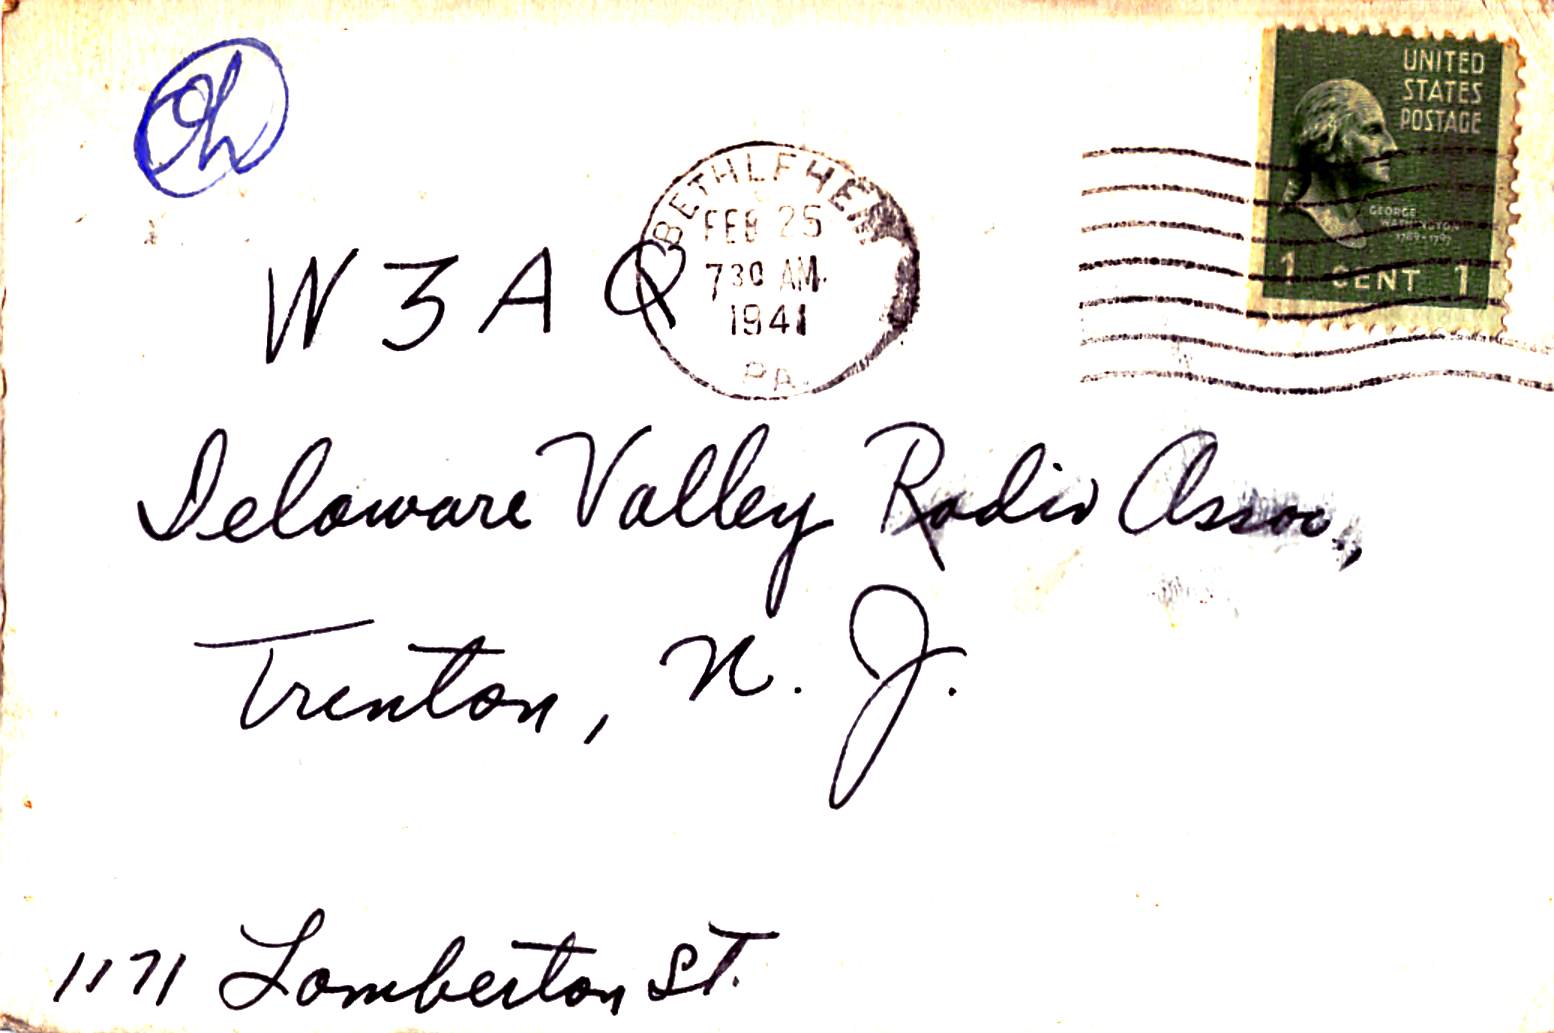 Oh
UNITED
STATES
POSTAGE
GEORGE
WASHINGTON
1789-1797
1 CENT 1
BETHLEHEM
FEB 25
730 AM
1941
PA.
W3AQ
Delaware Valley Radio Assoc.,
Trenton, N. J.
1171 Lamberton St.